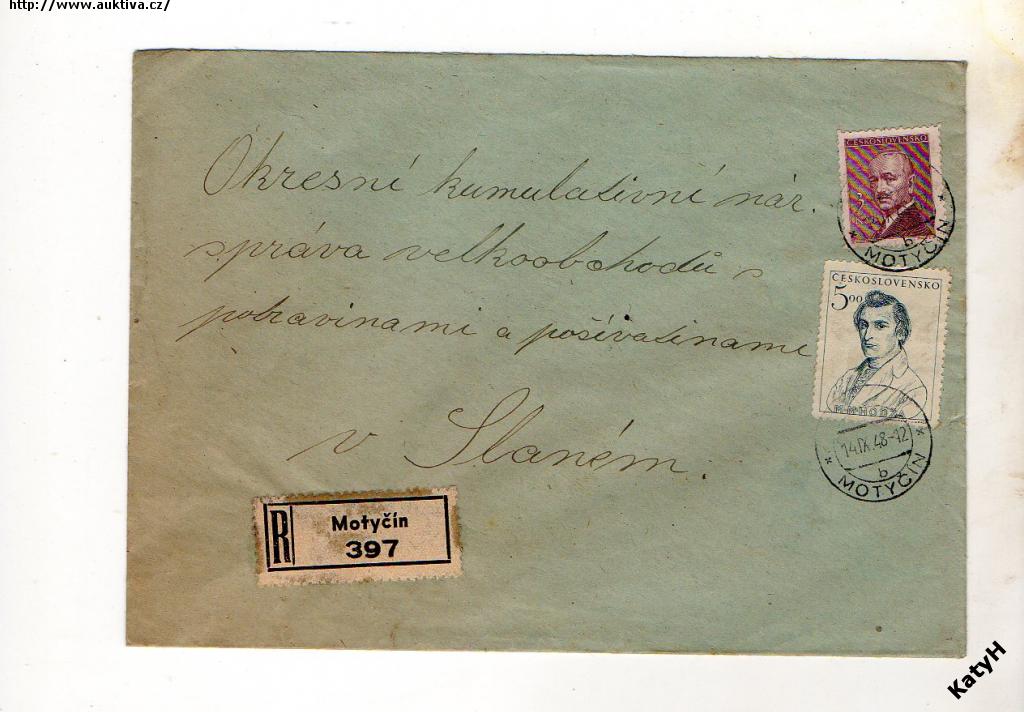 http://www.auktiva.cz/
Okresní kumulativní nár.
správa velkoobchodů s
potravinami a poživatinami
v Slaném.
ČESKOSLOVENSKO
MOTYČÍN
b
ČESKOSLOVENSKO
5 00
M·M·HODŽA
14.IX.48-12
b
MOTYČÍN
R
Motyčín
397
KatyH